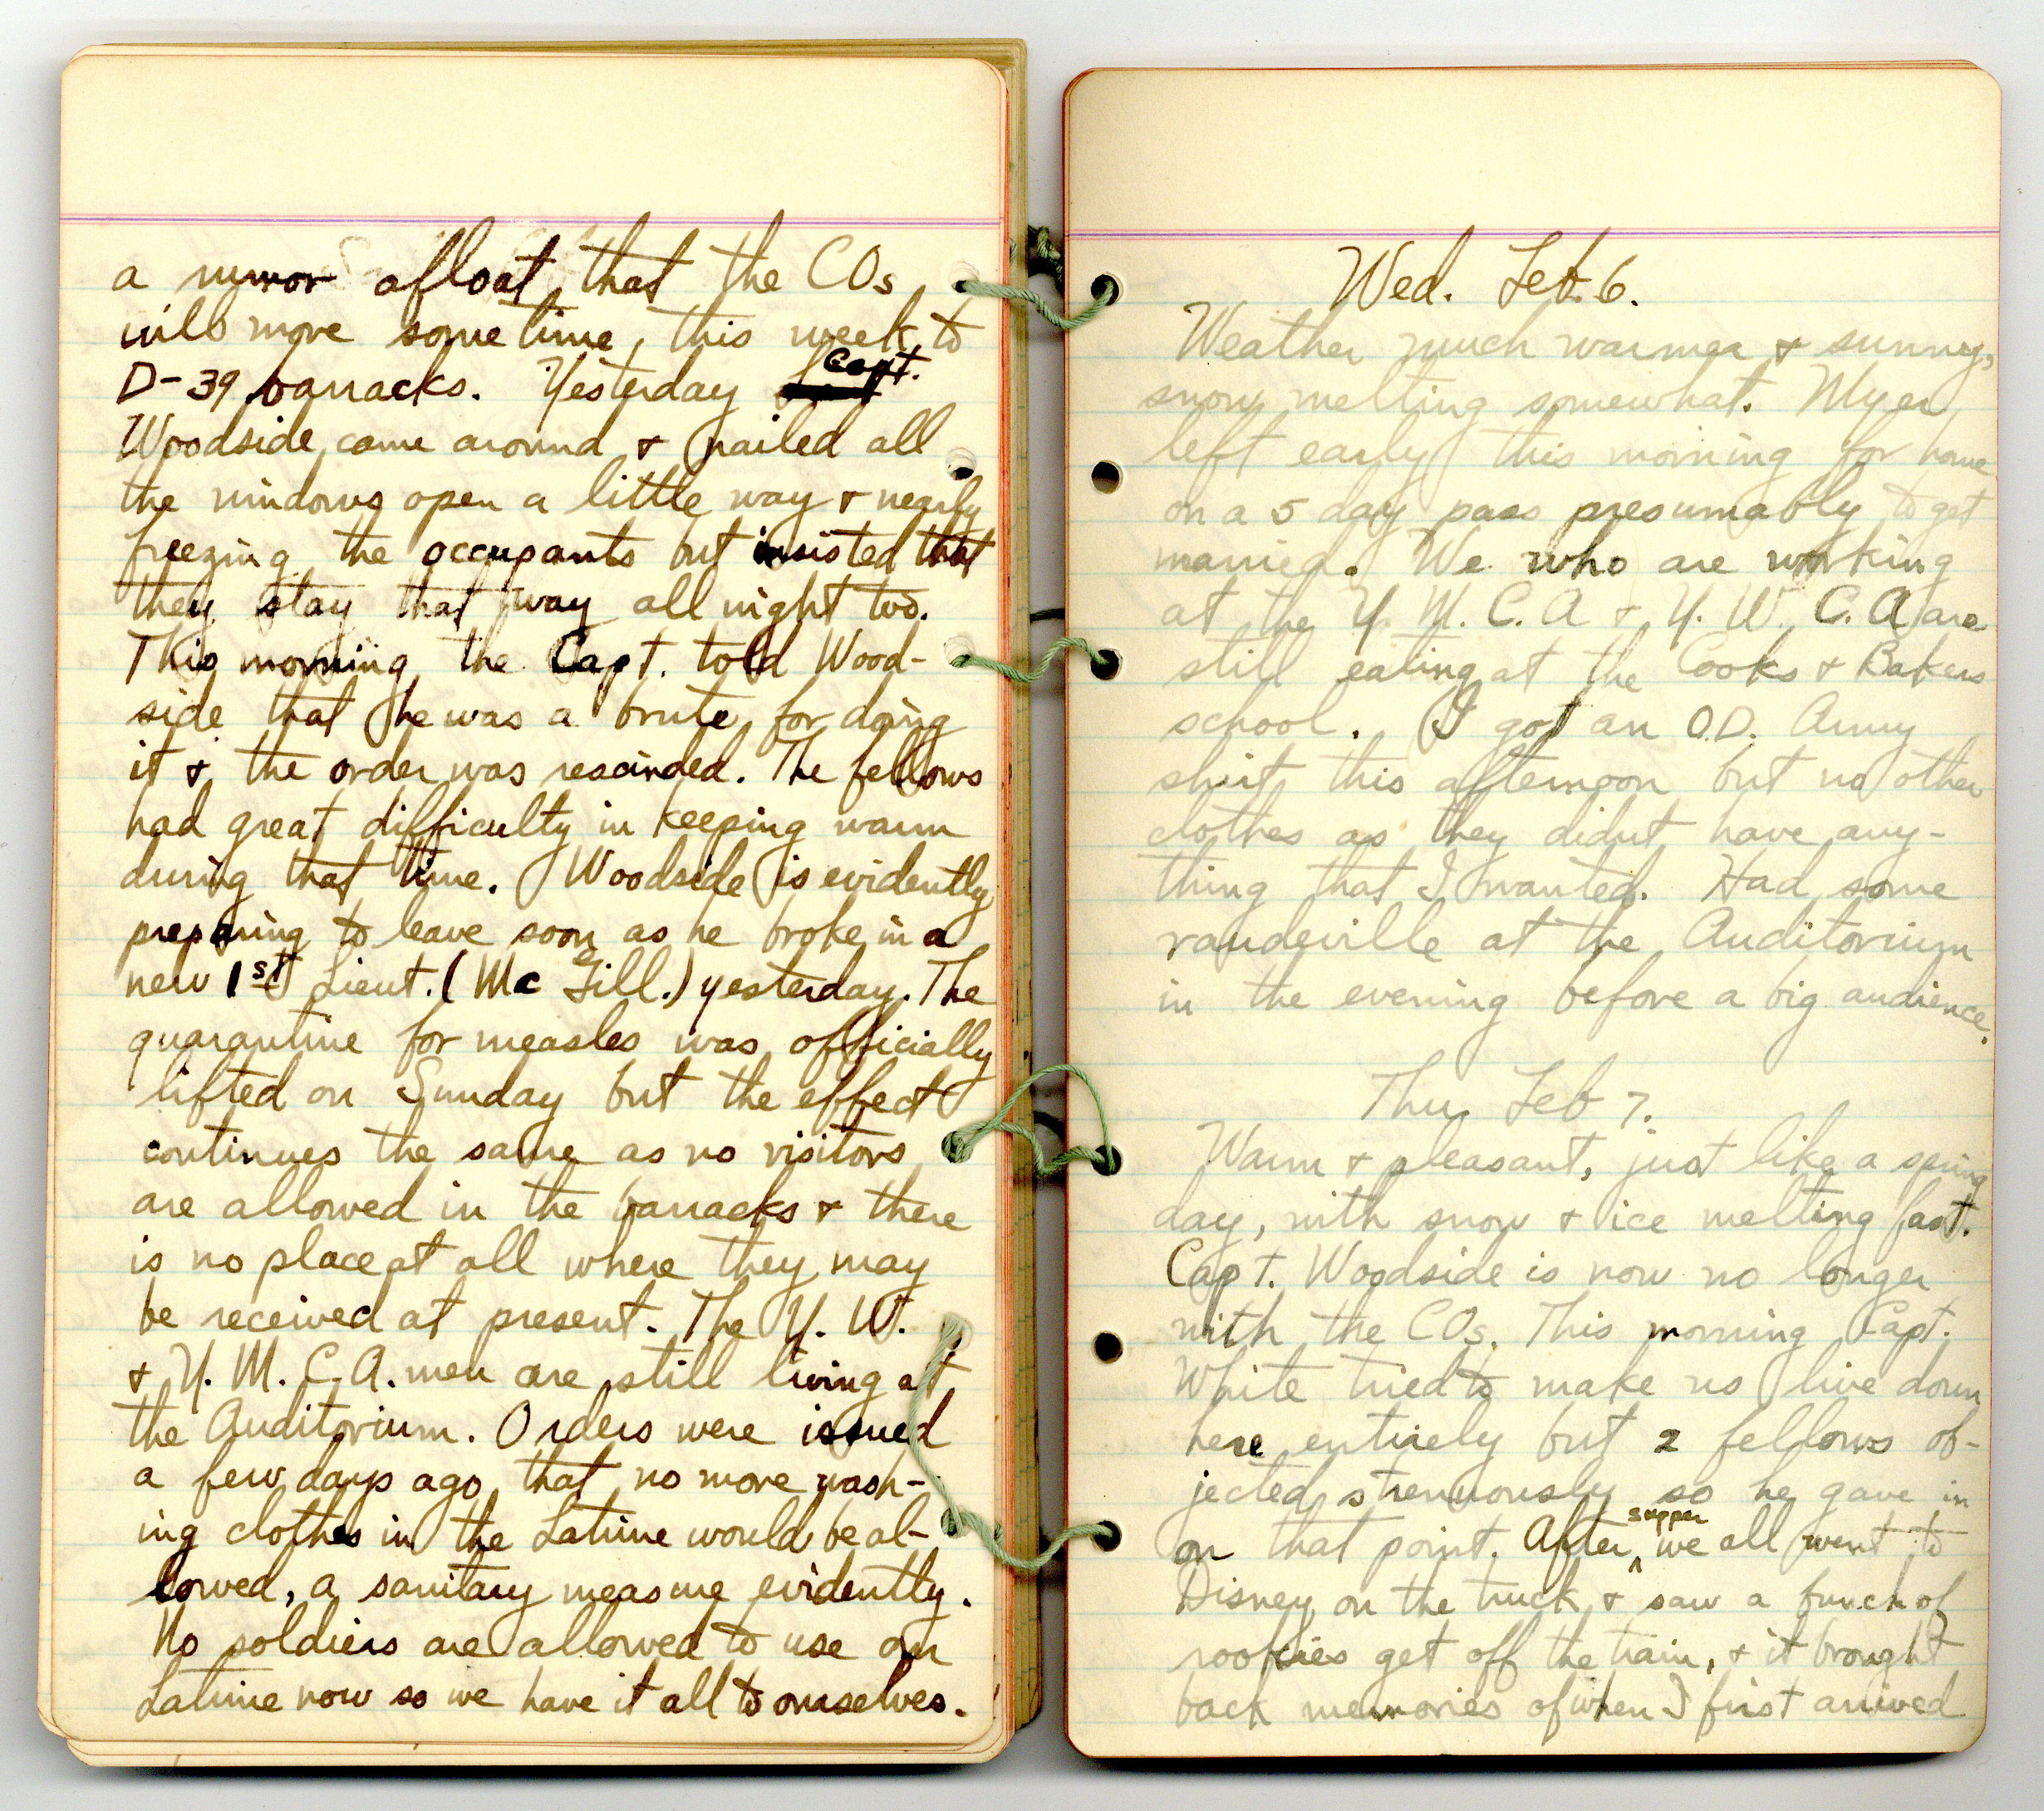 a rumor afloat that the COs
will move some time this week to
D-39 barracks. Yesterday Capt.
Woodside came around & nailed all
the windows open a little way & nearly
freezing the occupants but insisted that
they stay that way all night too.
This morning the Capt. told Wood-
side that he was a brute for doing
it & the order was rescinded. The fellows
had great difficulty in keeping warm
during that time. Woodside is evidently
preparing to leave soon as he broke in a
new 1st Lieut. (Mc Gill.) yesterday. The
quarantine for measles was officially
lifted on Sunday but the effect
continues the same as no visitors
are allowed in the barracks & there
is no place at all where they may
be received at present. The Y. W.
& Y. M. C. A. men are still living at
the Auditorium. Orders were issued
a few days ago that no more wash-
ing clothes in the Latrine would be al-
lowed, a sanitary measure evidently.
No soldiers are allowed to use our
Latrine now so we have it all to ourselves.
Wed. Feb. 6.
Weather much warmer & sunny,
snow melting somewhat. Myer
left early this morning for home
on a 5 day pass presumably to get
married. We who are working
at the Y. M. C. A & Y. W. C. A are
still eating at the Cooks & Bakers
school. I got an O.D. Army
shirt this afternoon but no other
clothes as they didnt have any-
thing that I wanted. Had some
vaudeville at the Auditorium
in the evening before a big audience.
Thu. Feb 7.
Warm & pleasant, just like a spring
day, with snow & ice melting fast.
Capt. Woodside is now no longer
with the COs. This morning Capt.
White tried to make us live down
here entirely but 2 fellows ob-
jected strenuously so he gave in
on that point. After supper we all went to
Disney on the truck & saw a bunch of
rookies get off the train, & it brought
back memories of when I first arrived